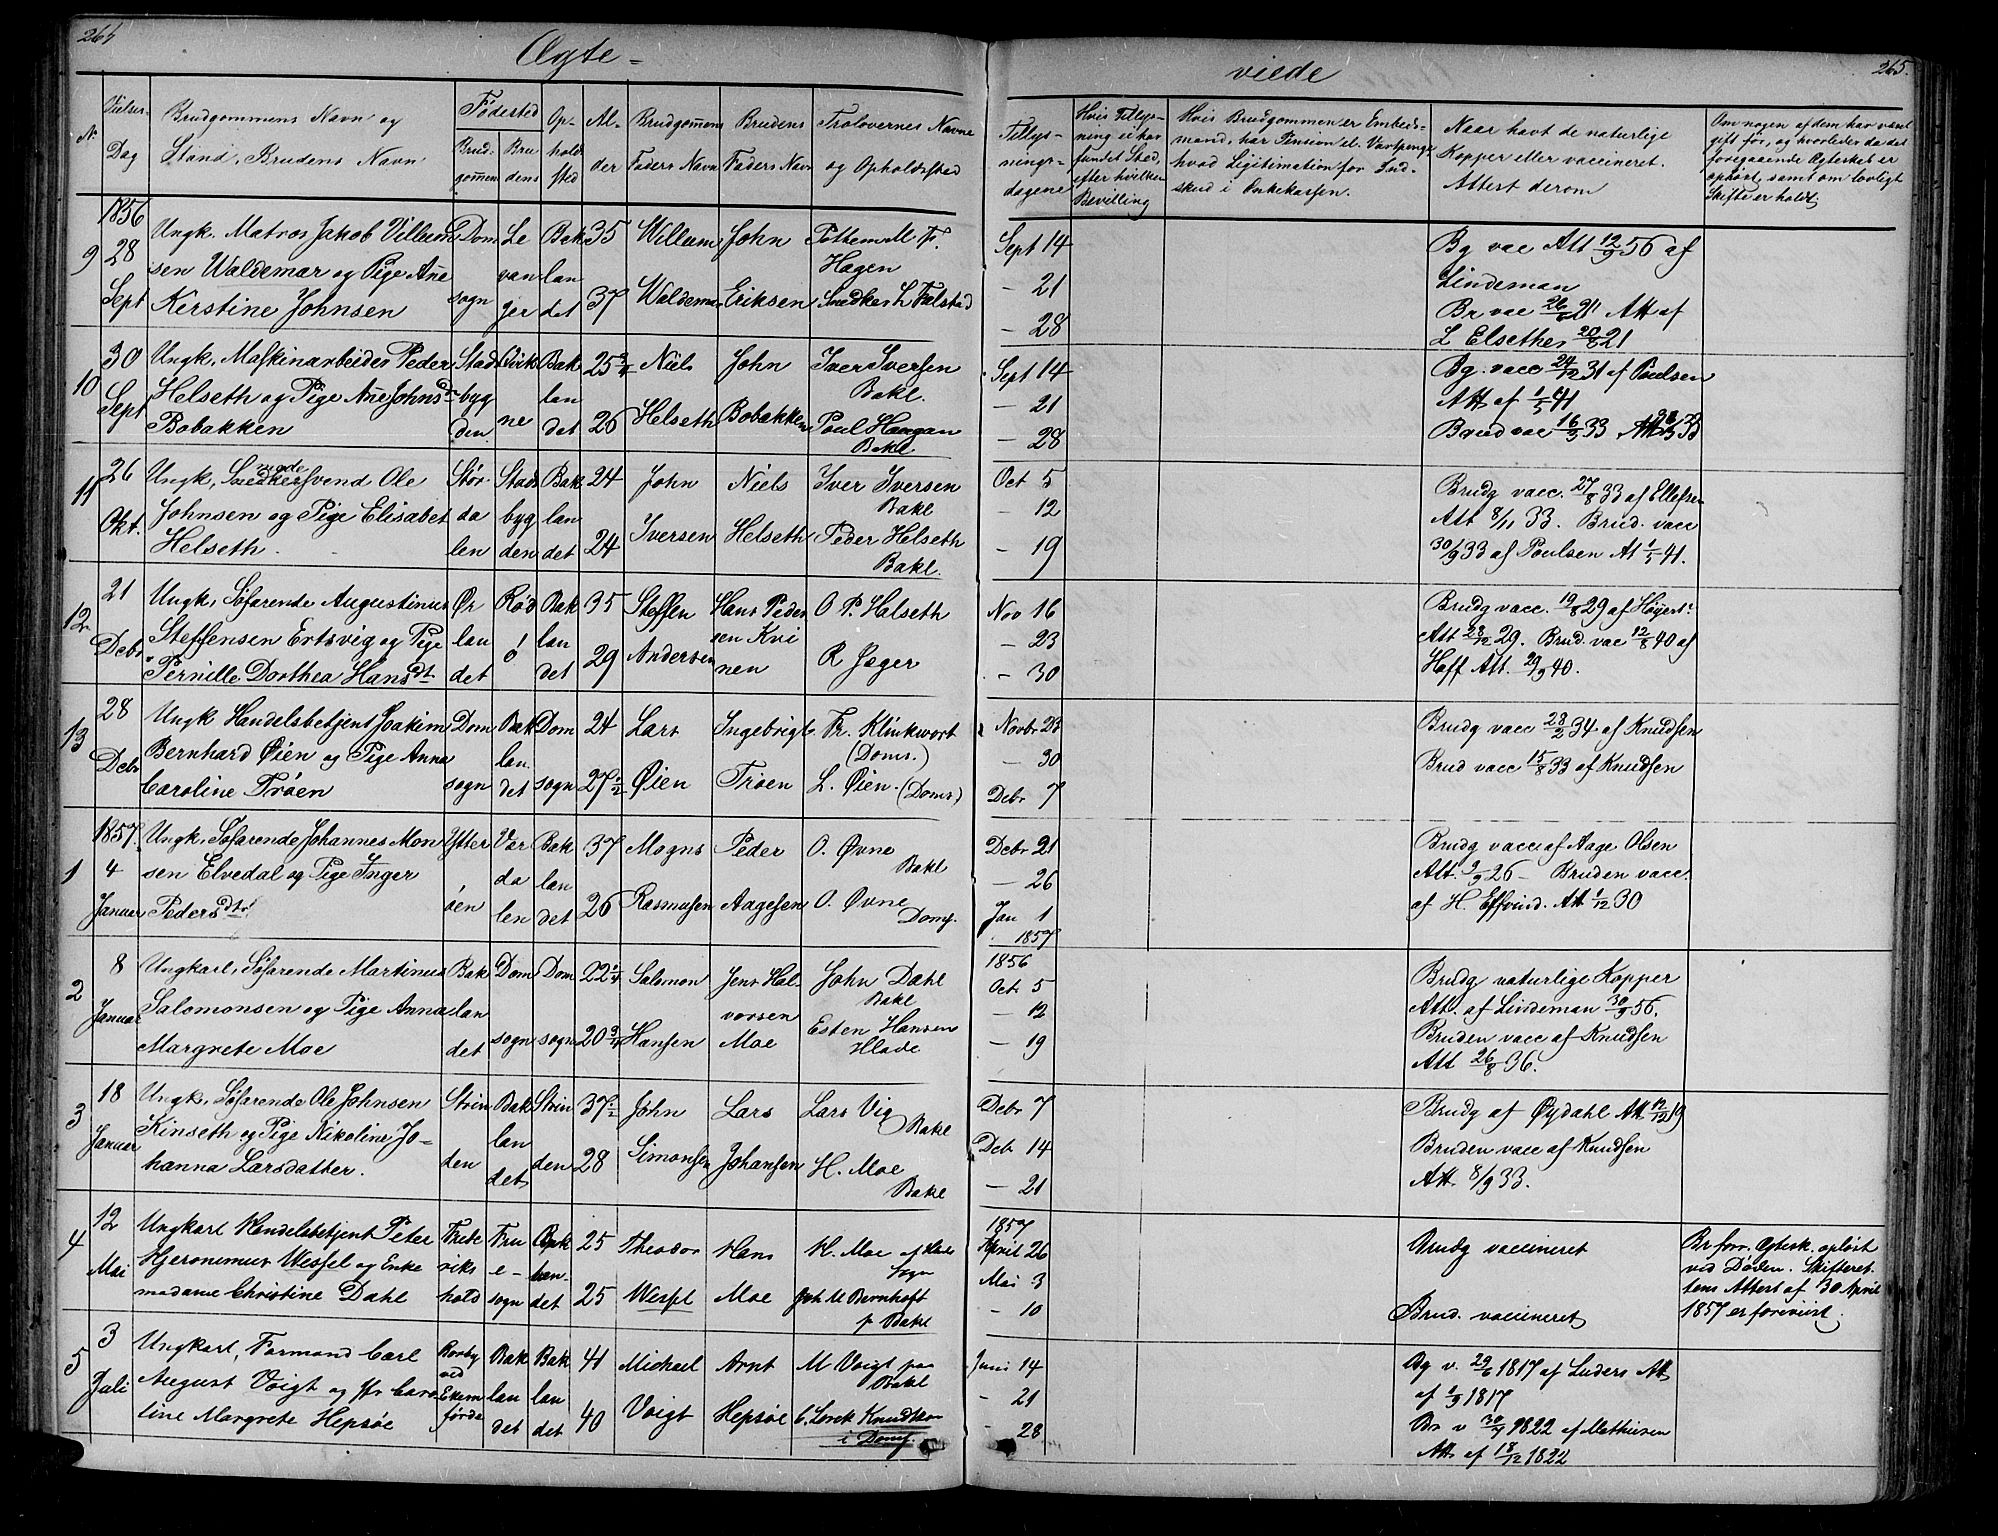 264
265.
Ægte=
viede
N.
Vielses-
Dag
Brudgommens Navn og
Stand, Brudens Navn
Fødested
Brud-
gomen
Bru
dens
Op-
hold
sted
Al-
der
Brudgomens
Faders Navn
Brudens
Faders Navn
Trolovernes Navne
og Opholdssted
Tillys-
nings-
dagene
Hvis Tillys-
ning ei har
fundet Sted,
efter hvilken
Bevilling
Hvis Brudgommen er Embeds-
mand, har Pension el. Vartpenge
hvad Legitimation for Ind-
skud i Enkekassen.
Naar havt de naturlige
Kopper eller vaccineret.
Attest derom
Om nogen af dem har været
gift før, og hvorledes da det
foregaaende Ægteskab er
ophørt, samt om lovligt
Skifte er holdt.
1856
9
28
Sept
Ungk. Matros Jakob Villum
sen Waldemar og Pige Ane
Kerstine Johnsen
Dom
sogn
Le
van
ger
Bak
lan
det
35
37
Willum
Waldemar
John
Eriksen
Hagen
Snedker L Falstad
Sept 14
— 21
— 28
Bg vac Att 12/9 56 af
Lindeman
Br vac 26/6 21 Att af
L Elsether 20/8 21
10
30
Sept
Ungk, Maskinarbeider Peder
Helseth og Pige Ane Johnsd
Bobakken
Stads
byg
den
Virks
ne
Bak
lan
det
25 3/4
26
Niels
Helseth
John
Bobakken
Iver Iversen
Bakl.
Poul Haugan
Bakl
Sept 14
— 21
— 28
Bg. vacc 24/12 31 af Poulsen
Att af 1/5 41
Brud vac 16/3 33
11
26
Okt.
Ungk, Snedkersvend Ole
Johnsen og Pige Elisabet
Helseth.
Stør
da
len
Stads
byg
den
Bak
lan
det
24
24
John
Iversen
Niels
Helseth
Iver Iversen
Bakl
Peder Helseth
Bakl.
Oct 5
— 12
— 19
Brudg vacc. 27/8 33 af Ellefsen
Att 8/11 33. Brud. vacc
30/9 33 af Poulsen At 1/5 41.
12
21
Debr
Ungk, Søfarende Augustinus
Steffensen Ertsvig og Pige
Pernille Dorthea Hansdt
Ør
lan
det
Rød
ö
Bak
lan
det
35
29
Steffen
Andersen
Hans Peder
sen Kvi
nen
O P. Helseth
R Jæger
Nov 16
— 23
— 30
Brudg vacc. 19/8 29 af
Att 28/12 29. Brud. vac 12/8 40 af
Hoff Att. 29/9 40.
13
28
Debr
Ungk Handelsbetjent Joakim
Bernhard Øien og Pige Anna
Caroline Trøen
Dom
sogn
Bak
lan
det
Dom
sogn
24
27 1/2
Lars
Øien
Ingebrigt
Trøen
Fr. Klinkwort
(Doms.)
L. Øien. (Doms)
Novbr 23
— 30
Debr 7
Brudg vacc 28/2 34 af Knudsen
Brud vacc 15/8 33 af Knudsen
1857.
1
4
Januar
Ungk, Søfarende Johannes Mon
sen Elvedal og Pige Inger
Pedersdtr
Ytter
øen
Vær
da
len
Bak
lan
det
37
26
Mogns
Rasmussen
Peder
Aagesen
O. Øvne
Bakl
O. Øvne
Doms.
Debr 21
— 26
Jan 1
1857
Brudg vacc af Aage Olsen
Att. 3/9 26 – Bruden vacc.
af H. Effvind. Att 1/12 30
2
8
Januar
Ungkarl, Søfarende Martinus
Salomonsen og Pige Anna
Margrete Moe
Bak
lan
det
Dom
sogn
Dom
sogn
22 1/4
20 3/4
Salomon
Hansen
Jens Hal
vorsen
Moe
John Dahl
Bakl
Esten Hansen
Hlade
1856
Oct. 5
— 12
— 19
Brudg naturlige Kopper
Att. af Lindeman 30/9 56.
Bruden vacc af Knudsen
Att 26/8 36.
3
18
Januar
Ungk, Søfarende Ole Johnsen
Kinseth og Pige Nikoline Jo-
hanna Larsdatter.
Strin
den
Bak
lan
det
Strin
den
37 1/2
28
John
Simonsen
Lars
Johansen
Lars Vig
Bakl
H. Moe
Bakl
Debr 7
Debr 14
— 21
Brudg af Øydahl Att 12/12 19
Bruden vacc af Knudsen
Att. 8/9 33.
4
12
Mai
Ungkarl Handelsbetjent Peter
Hjeronimus Wessel og Enke
madame Christine Dahl
Frede
riks
hold
Fru
e-
sogn
Bak
lan-
det
25
25
Theodor
Wessel
Hans
Moe
H. Moe af Hlade
Sogn
Joh M Bernhoft
p Bakl
1857
April 26
Mai 3
— 10
Brudg vaccineret
Brud. vaccineret
Br forr. Ægtesk. opløst
ved Døden. Skifteret
tens Attest af 30 April
1857 er foreviist.
5
3
Juli
Ungkarl, Formand Carl
August Voigt og Jfr Caro
line Margrete Hepsøe
Borby
ved
Ekern
förde
Bak
lan
det
Bak
lan
det
41
40
Michael
Voigt
Arnt
Hepsøe
M Voigt paa
Bakl
C. Lorck Knudtzon
i Doms.
Juni 14
– 21
– 28
Bg v. 29/6 1817 af Luders Att
af 1/9 1817
Br v 30/9 1822 af Mathiesen
Att af 18/12 1822